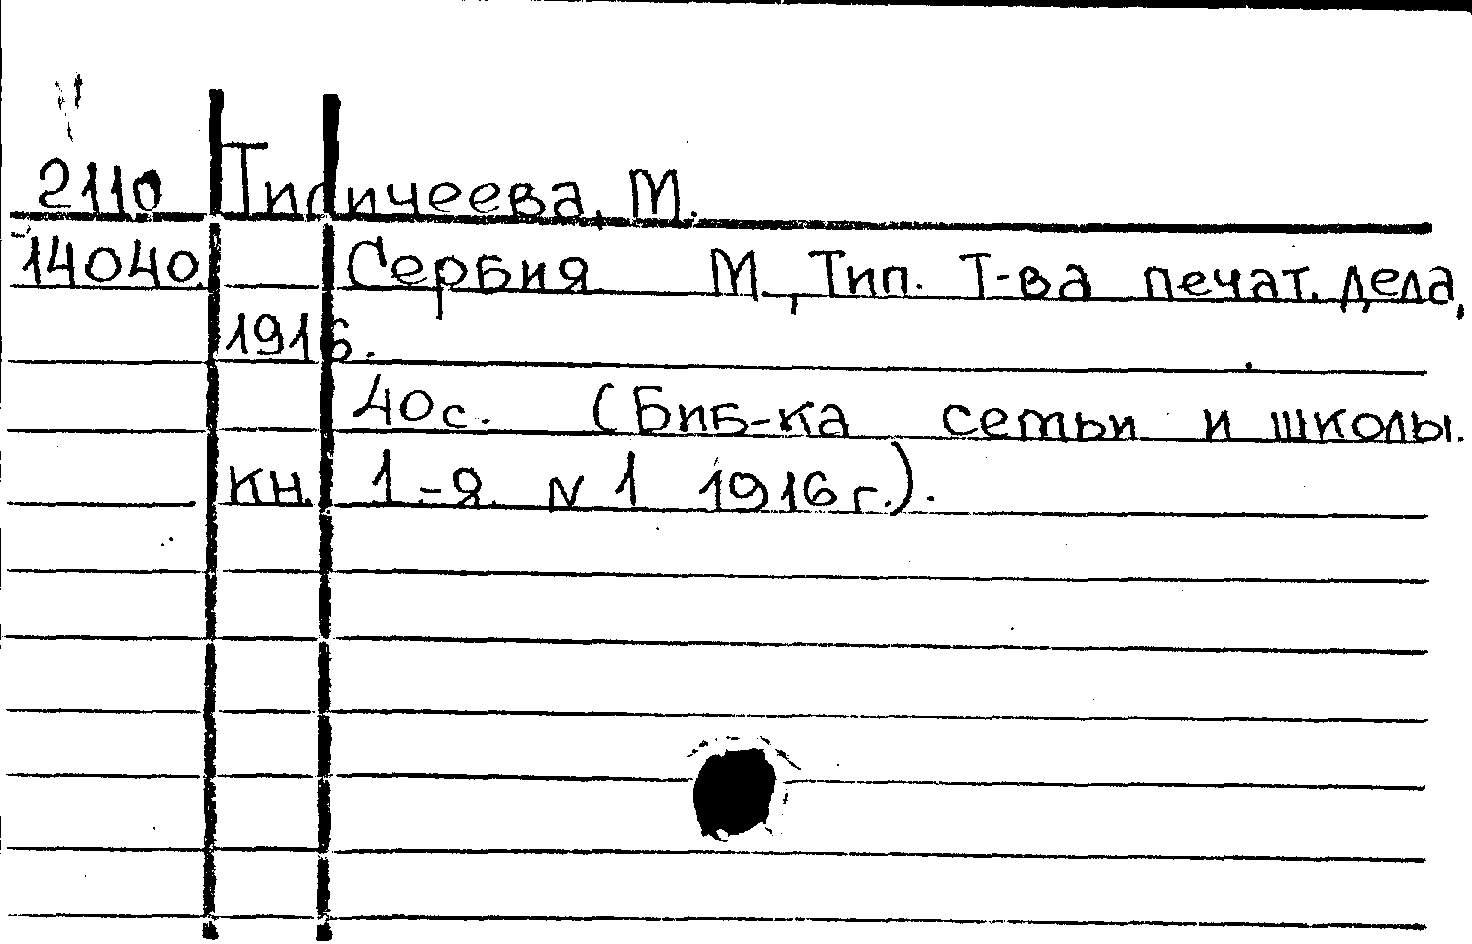 2110 Тиличеева, М.
14040 Сербия М., Тип. Т-ва печат. дела,
1916.
40с. (Биб-ка семьи и школы.
кн. 1-я. N 1 1916 г.).